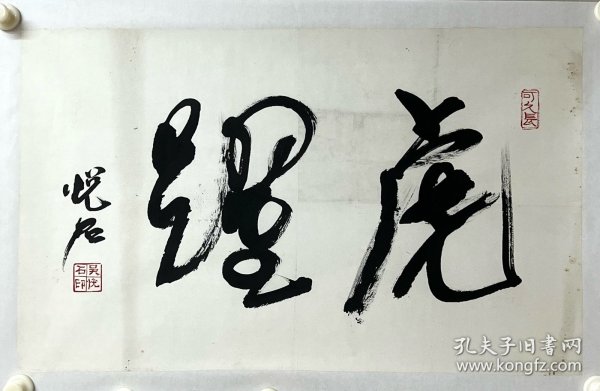 虎躍
悦石
可久長
吴悦石印
孔夫子旧書网
www.kongfz.com